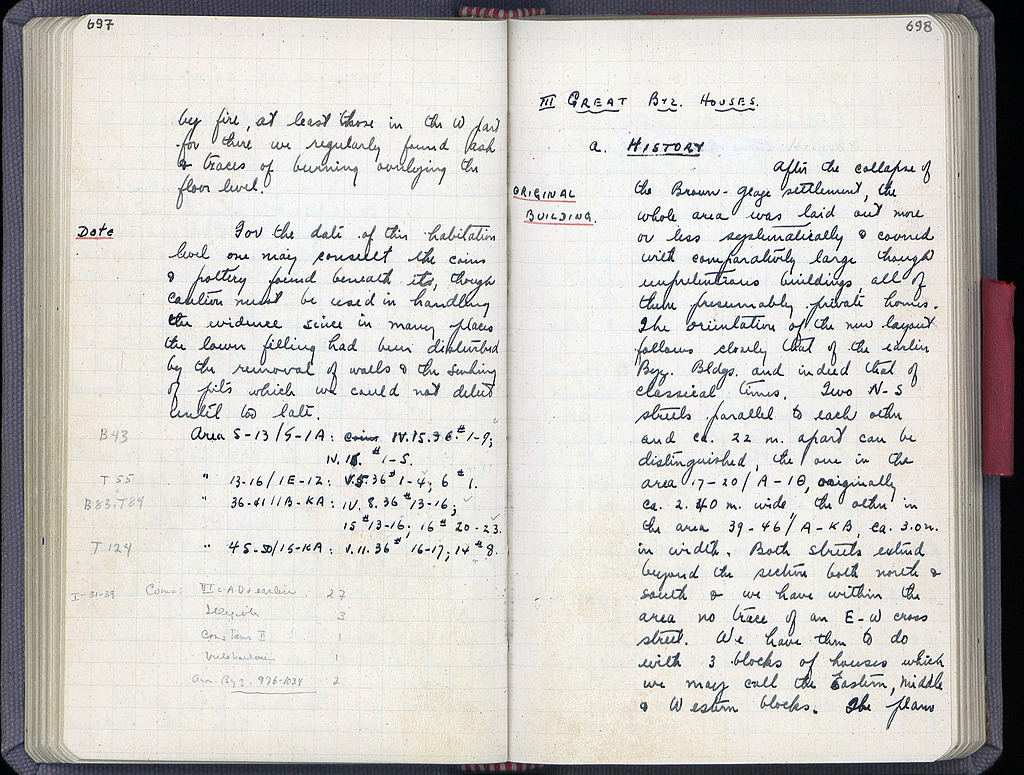 697
by fire, at least those in the W part
for there we regularly found ash
& traces of burning overlying the
floor level.
Date
For the date of this habitation
level one may consult the coins
& pottery found beneath it, though
caution must be used in handling
the evidence since in many places
the lower filling had been disturbed
by the removal of walls & the sinking
of pits which we could not detect
until too late.
B43
Area 5-13/5-1A: coins IV.15.36 #1-9;
IV. 18. #1-5.
T55
" 13-16/1E-12: V.5.36 #1-4; 6 #1.
B83, T84
" 36-41/1B-KA: IV. 8.36 #13-16;
15 #13-16; 16 # 20-23.
T124
" 45-50/15-KA: V.11.36 # 16-17; 14 # 8.
I-31-39
Coins: VI c. A D & earlier : 27
Illegible 3
Constans II 1
1
An. Byz. 976-1034 2
698
III GREAT BYZ. HOUSES.
a. HISTORY
ORIGINAL
BUILDING.
After the collapse of
the Brown-glaze settlement, the
whole area was laid out more
or less systematically & covered
with comparatively large though
unpretentious buildings, all of
them presumably private homes.
The orientation of the new layout
follows closely that of the earlier
Byz. Bldgs. and indeed that of
classical times. Two N-S
streets parallel to each other
and ca. 22 m. apart can be
distinguished, the one in the
area 17-20/A-1Θ, originally
ca. 2.40 m. wide, the other in
the area 39-46/A-KB, ca. 3.0 m.
in width. Both streets extend
beyond the section both north &
south & we have within the
area no trace of an E-W cross
street. We have then to do
with 3 blocks of houses which
we may call the Eastern, Middle
& Western blocks. The plans